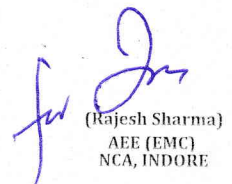 for
(Rajesh Sharma)
AEE (EMC)
NCA, INDORE